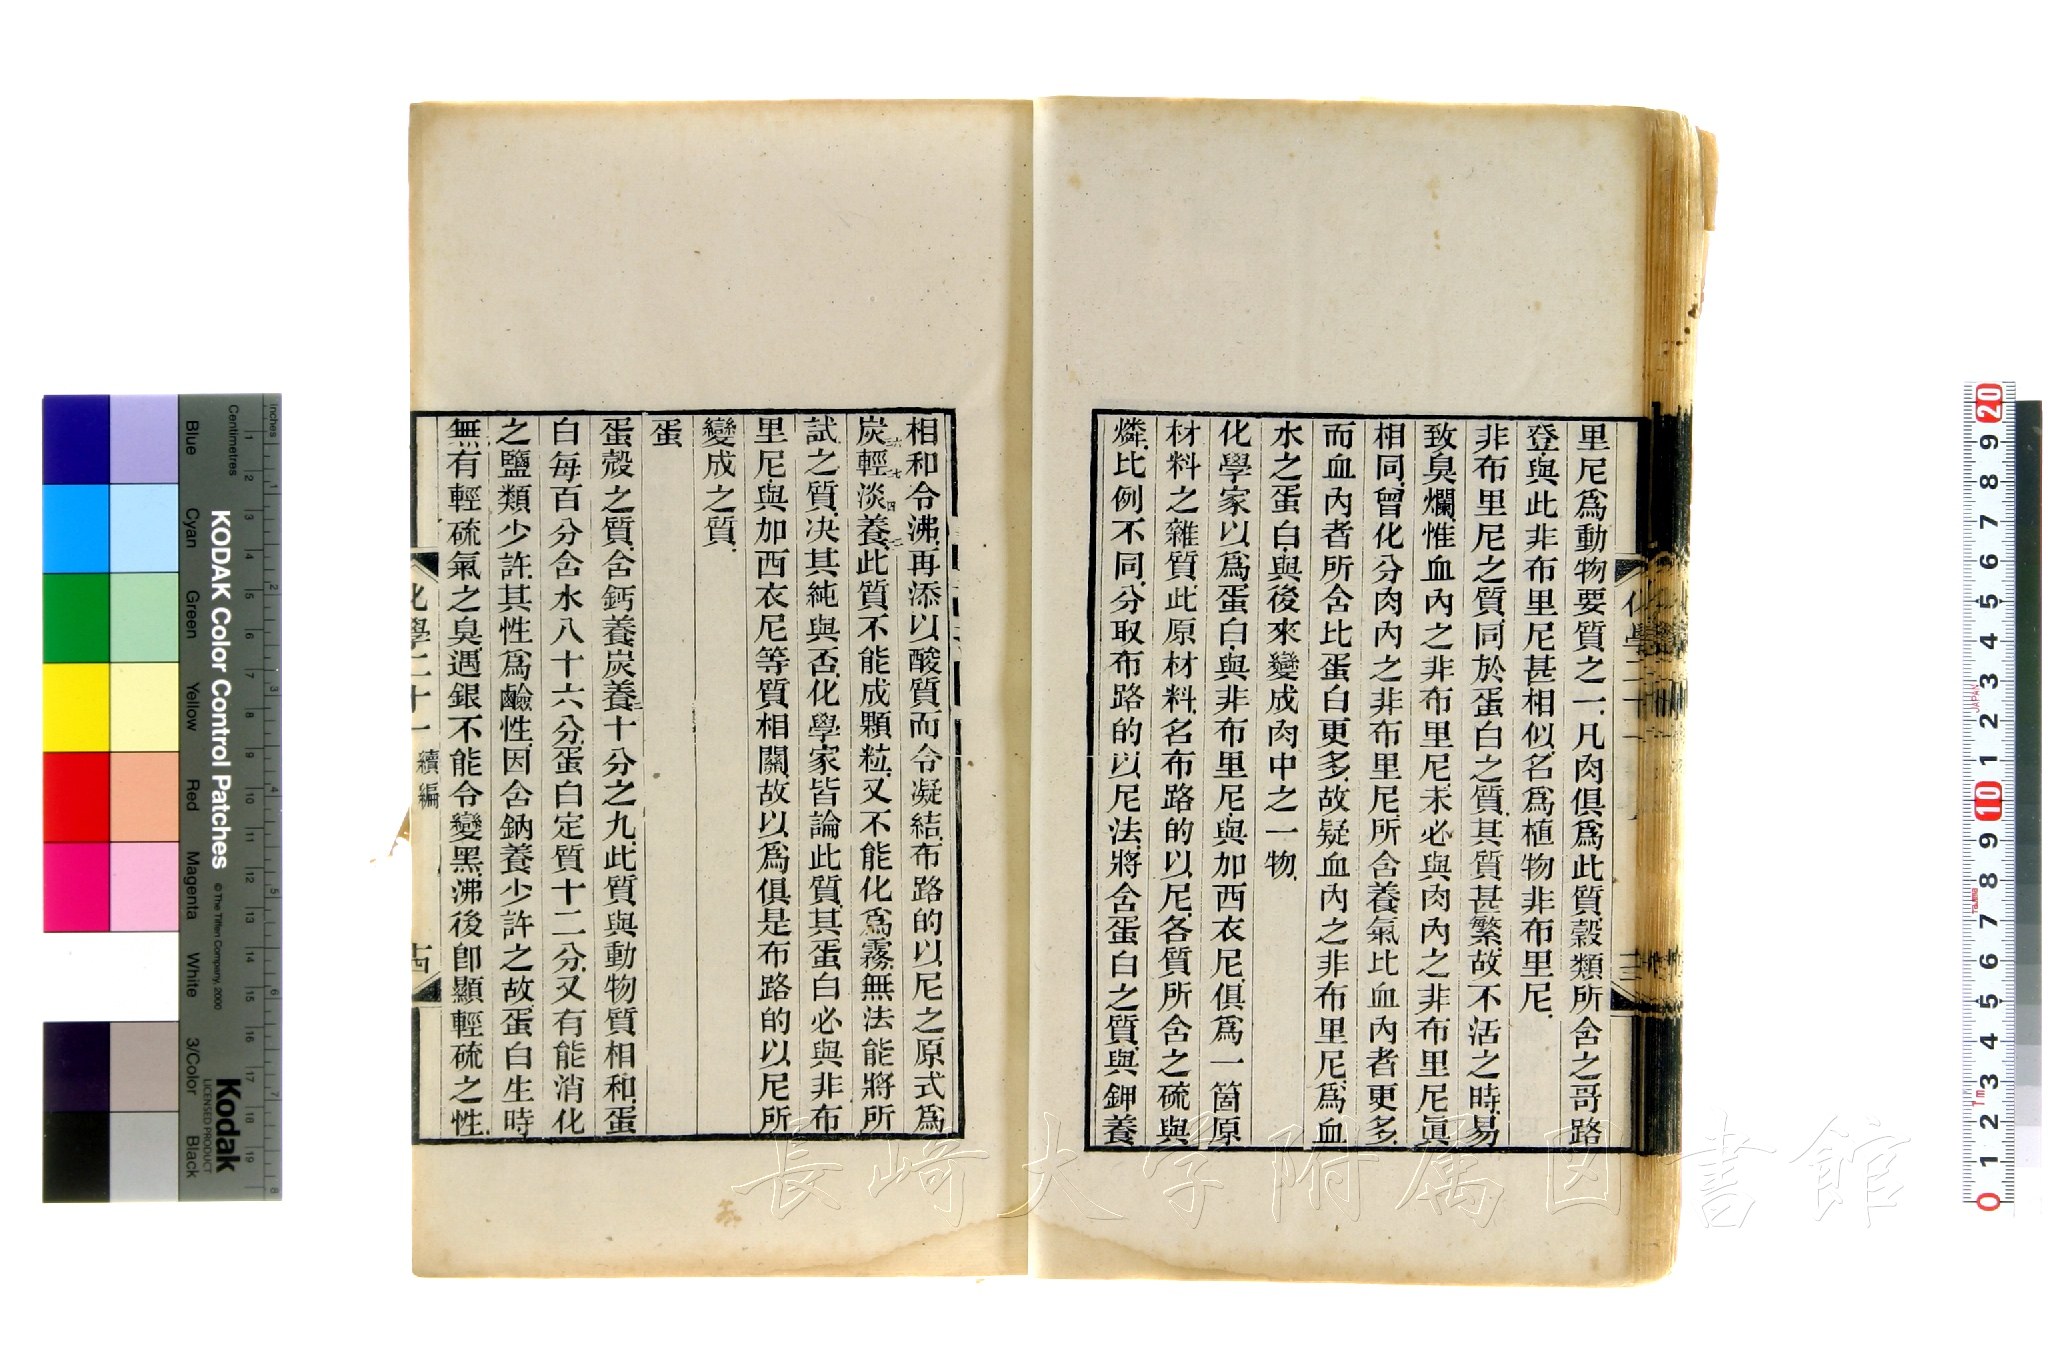 里尼爲動物要質之一、凡肉俱爲此質、穀類所含之哥路
登、與此非布里尼甚相似、名爲植物非布里尼、
非布里尼之質、同於蛋白之質、其質甚繁、故不活之時、易
致臭爛、惟血內之非布里尼、未必與肉內之非布里尼眞
相同、曾化分肉內之非布里尼、所含養氣、比血內者更多、
而血內者所含、比蛋白更多、故疑血內之非布里尼、爲血
水之蛋白、與後來變成肉中之一物、
化學家以爲蛋白、與非布里尼、與加西衣尼、俱爲一箇原
材料之雜質、此原材料、名布路的以尼、各質所含之硫與
燐、比例不同、分取布路的以尼法、將含蛋白之質、與鉀養
相和令沸、再添以酸質、而令凝結、布路的以尼之原式爲
炭輕淡養、此質不能成顆粒、又不能化爲霧、無法能將所
試之質、決其純與否、化學家皆論此質、其蛋白必與非布
里尼、與加西衣尼等質相關、故以爲俱是布路的以尼所
變成之質、
蛋
蛋殼之質、含鈣養炭養二十分之九、此質與動物質相和、蛋
白每百分含水八十六分、蛋白定質十二分、又有能消化
之鹽類少許、其性爲鹼性、因含鈉養少許之故、蛋白生時
無有輕硫氣之臭、遇銀不能令變黑、沸後卽顯輕硫之性
化學二十一 續編 十四
化學二十一
長崎大学附属図書館
KODAK Color Control Patches
© The Tiffen Company, 2000
Kodak
LICENSED PRODUCT
Inches
Centimetres
Blue
Cyan
Green
Yellow
Red
Magenta
White
3/Color
Black